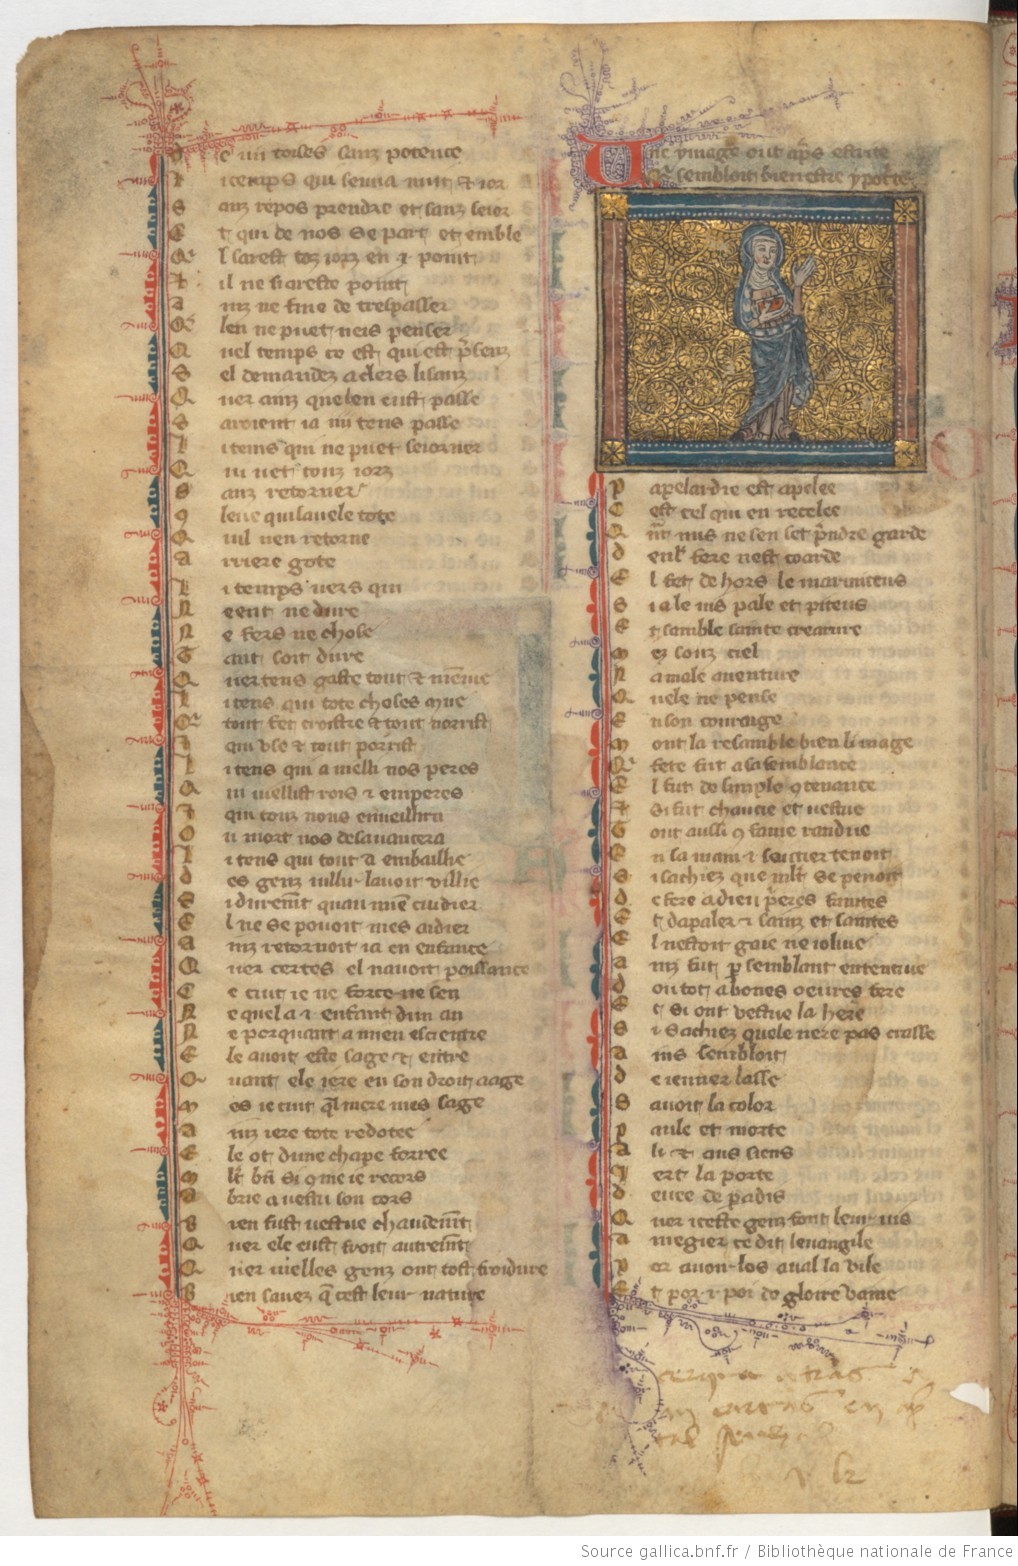 e un toises sanz potence
L i temps qui senva nuit et ior
S anz repos prendre et sanz seior
E t qui de nos se part et emble
Q l sarest toz iorz en .i. point
il ne si areste point
A inz ne fine de trespasser
Q len ne puet neis penser
Q uel temps ce est qui est psenz
S el demandez a clers lisanz
Q uer ainz que len eust passe
S eroient ia .iii. tens passe
L i tens qui ne puet seiorner
Q ui vet touz iorz
S anz retorner
9 leue qui savele tote
Q uil nen retorne
A rriere gote
L i temps vers qui
N eent ne dure
N e fers ne chose
T ant soit dure
Q uer tens gaste tout et
L i tens qui tote choses mue
Q tout fet croistre et tout norrist
qui vse et tout porrist
L i tens qui a nos peres
Q ui viellist rois et emperes
qui touz nous enveillira
O u mort nos desavancera
L i tens qui tout a embaillie
D es genz
S i durement quau mien cuidier
E l ne se pooit mes aidier
A inz retornoit ia en enfance
Q uer certes el navoit poissance
C e cuit ie ne force ne sen
N e quel a .i. enfant dun an
N e porquant a mien escientre
E le avoit este sage et entre
Q uant ele iere en son droit aage
M es ie cuit ql niere mes sage
A inz iere tote redotee
E le ot dune chape forree
M lt bn si 9me ie recors
A brie a vestu son cors
B ien fust vestue chaudemt
Q uer ele eust froit autremt
Q uer vielles genz ont tost froidure
B ien savez q cest leur nature
U ne ymage ont aps escrite
Q sembloit bien estre ypocrite
P apelardie est apelee
C est cel qui en recelee
Q nt nus ne sen set pndre garde
D e nul fere nest coarde
E l fet dehors le marmiteus
S i a le vis pale et piteus
E t samble sainte creature
M ez souz ciel
N a male aventure
Q uele ne pense
E n son courage
M ont la resamble bien limage
Q fete fut a sa semblance
E l fut de simple 9tenance
si fut chaucie et vestue
T ont aussi 9 fame rendue
E n sa main .i. sautier tenoit
S i sachiez que mlt se penoit
D e fere a dieu peres faintes
E t dapeler et sainz et saintes
E l nestoit gaie ne iolive
A inz fut p semblant ententive
D ou tot a bones oeures fere
E t si ont vestue la here
S i sachiez quele nere pas crasse
A ins sembloit
D e ieuner lasse
S avoit la color
P aule et morte
A li et aus siens
I ert la porte
D evee de padis
Q uer iceste genz font leur vis
A megier ce dit levangile
P or avoir los aval la vile
E t por .i. poi de gloire vaine
Source gallica.bnf.fr / Bibliothèque nationale de France